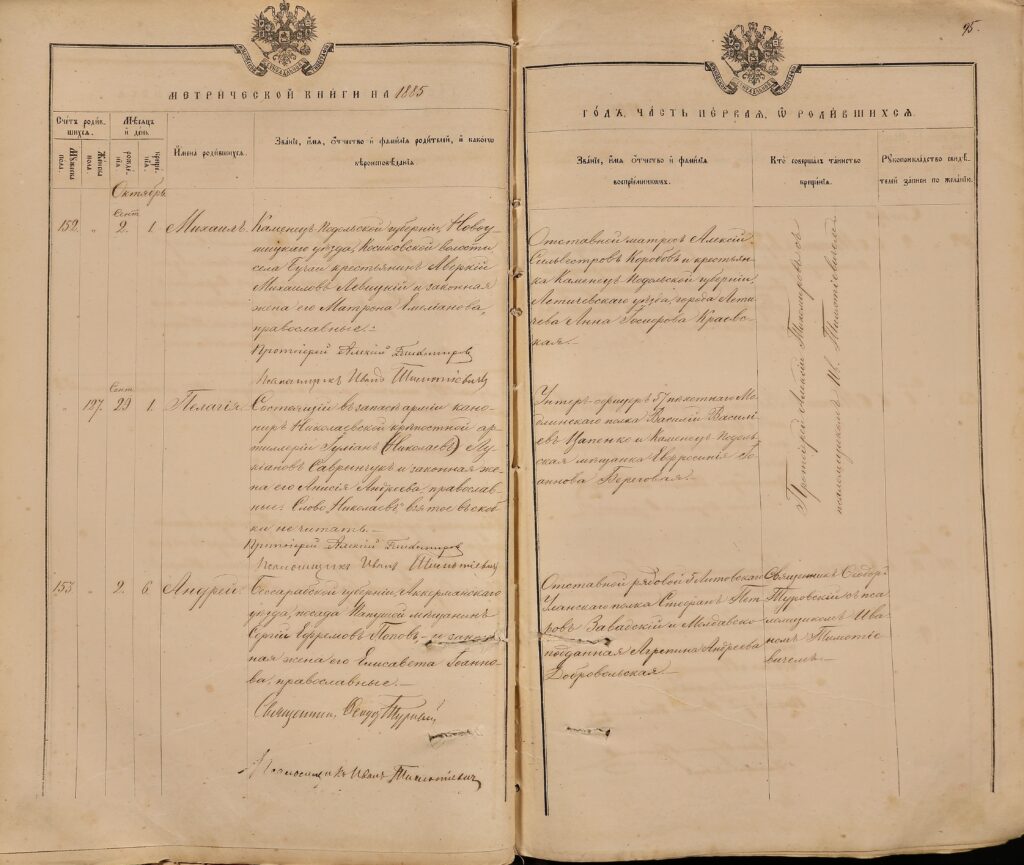 95.
МЕТРИЧЕСКОЙ КНИГИ НА 1885
ГОДЪ, ЧАСТЬ ПЕРВАЯ, Ѿ РОДИВШИХСЯ.
Счетъ родив-
шихся.
Мужеска
пола
Женска
пола
Мѣсяцъ
и день.
рожде-
нія.
креще-
нія.
Имена родившихся.
Званіе, имя, отчество и фамилія родителей, и какого
вѣроисповѣданія.
Званіе, имя, отчество и фамилія
воспріемниковъ.
Кто совершалъ таинство
крещенія.
Рукоприкладство свидѣ-
телей записи по желанію.
Октябрь.
152. " Сент 2. 1. Михаилъ.
Каменецъ Подольской губерніи, Новоу-
шицкаго уѣзда, Косиковской волости
села Бучаи крестьянинъ Аверкій
Михаиловъ Левицкій и законная
жена его Матрона Емельянова,
православные.
Протоіерей Алексій
Псаломщикъ Иванъ Тимотіевичъ
Отставной матросъ Алексій
Сильвестровъ Коробовъ и крестьян-
ка Каменецъ Подольской губерніи,
Летичевскаго уѣзда, города Лети-
чева Анна Госифова Краевс-
кая.
Протоіерей Алексій
псаломщикомъ Ив. Тимотіевичемъ
" 127. Сент 29 1. Пелагія.
Состоящій въ запасѣ арміи кано-
ниръ Николаевской крѣпостной ар-
тиллеріи Іуліанъ (Николаевъ) Лу-
кіановъ Саврынчукъ и законная же-
на его Анисія Андреева, православ-
ные. Слово "Николаевъ" взятое въ скоб-
ки не читать.
Протоіерей Алексій
Псаломщикъ Иванъ Тимотіевичъ
Унтеръ-офицеръ 57 пѣхотнаго Мо-
длинскаго полка Василій Василі-
евъ Цапенко и Каменецъ Подоль-
ская мѣщанка Евфросинія Іо-
аннова Береговая.
153. " 2. 6. Андрей.
Бессарабской губерніи, Аккерманскаго
уѣзда, посада Папушой мѣщанинъ
Сергій Ефремовъ Поповъ, и закон-
ная жена его Елисавета Іоанно-
ва, православные.
Священникъ Ѳеодоръ
Псаломщикъ Иванъ Тимотіевичъ
Отставной рядовой 5 Литовскаго
Уланскаго полка Стефанъ Пет-
ровъ Завадскій и Молдавско-
подданная Агрепина Андреева
Добровольская.
Священникъ Ѳеодоръ
Туровскій съ пса-
ломщикомъ Ива-
номъ Тимотіе-
вичемъ.